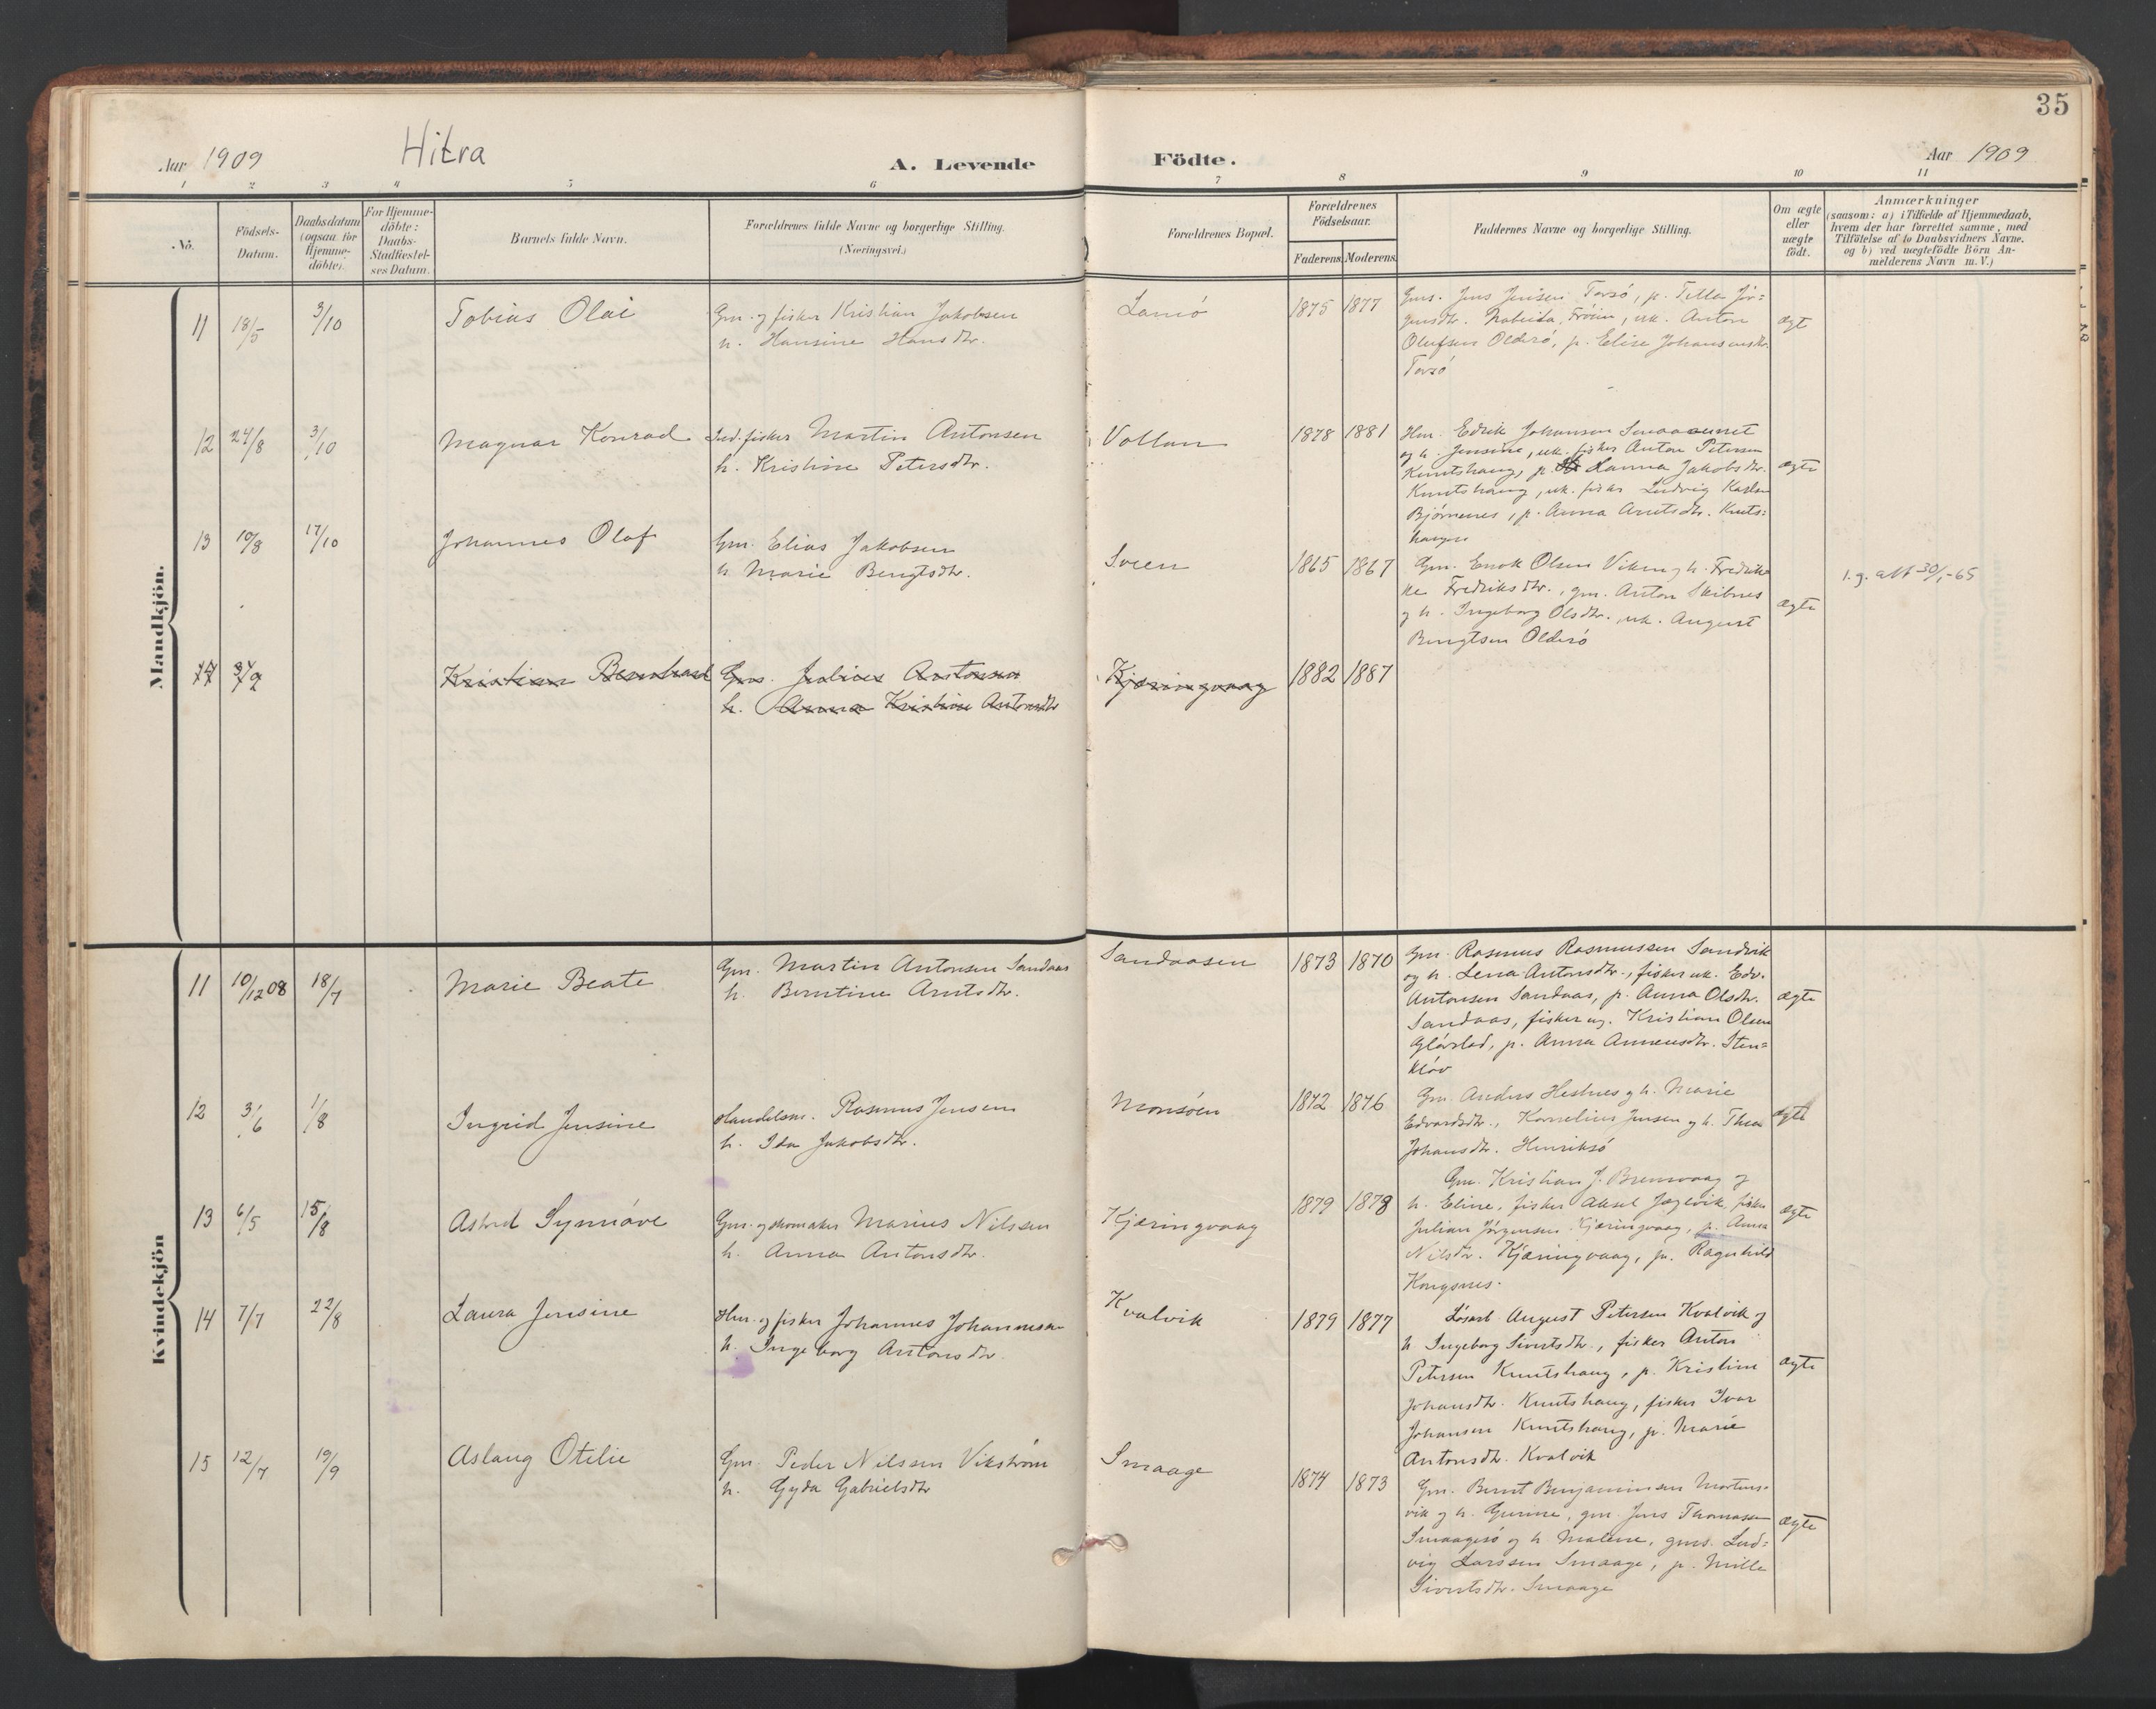 35
Aar 1909 Hitra A. Levende Födte. Aar 1909
1 2 3 4 5 6 7 8 9 10 11
No.
Födsels-
Datum.
Daabsdatum
(ogsaa for
Hjemme-
döbte).
For Hjemme-
döbte:
Daabs-
Stadfæstel-
ses Datum.
Barnets fulde Navn.
Forældrenes fulde Navne og borgerlige Stilling.
(Næringsvei.)
Forældrenes Bopæl.
Forældrenes
Födselsaar.
Faderens. Moderens.
Faddernes Navne og borgerlige Stilling.
Om ægte
eller
uægte
födt.
Anmærkninger
(saasom: a) i Tilfælde af Hjemmedaab,
hvem der har forrettet samme, med
Tilföielse af to Daabsvidners Navne.
og b) ved uægtefödte Börn An-
melderens Navn m. V.)
Mandkjön.
11 18/5 3/10 Tobias Olai
Gm. og fisker Kristian Jakobsen
h. Hansine Hansdtr.
Lamö 1875 1877
Gms. Jens Jensen Torsö, p. Tilla Jör=
gensdtr. Fröien, uk. Anton
Olufsen Olderö, p. Elise Johansensdtr.
Torsö
ægt
12 24/8 3/10 Magnar Konrad
Ind. fisker Martin Antonsen
h. Kristine Petersdtr.
Vollan 1878 1881
Hm. Edrik Johansen
og h. Jensine, uk. fisker Anton Petersen
Knutshaug, p. Hanna Jakobsdtr.
Knutshaug, uk. fisker Ludvig Karlsen
Björnenes, p. Anna Arntsdtr. Knuts=
haugen
ægte
13 10/8 17/10 Johannes Olaf
Gm. Elias Jakobsen
h Marie Bengtsdtr.
Sveen 1865 1867
Gm. Enok Olsen Viken og h. Fredrik
ke Fredriksdtr., gm. Anton Skibnes
og h. Ingeborg Olsdtr. uk. August
Bengtsen Olderö
ægte
1.g. att 30/1-65
14 3/9 Kristian Bernhard
Gms. Julius Antonsen
h. Anna Kristine Antonsdtr
Kjæringvaag 1882 1887
Kvindekjön
11 10/12 08 18/7 Marie Beate
Gm. Martin Antonsen Sandaas
h. Berntine Arntsdtr.
Sandaasen 1873 1870
Gm. Rasmus Rasmussen Sandvik
og h. Lena Antonsdtr., fisker uk. Edv.
Antonsen Sandaas, p. Anna Olsdtr.
Sandaas, fisker ug. Kristian Olsen
p. Anna Annensdtr. Sten=
klöv
ægte
12 3/6 1/8 Ingrid Jensine
Handelsm. Rasmus Jensen
h. Ida Jakobsdtr.
Monsöen 1872 1876
Gm Anders Hestnes og h. Marie
Edvardsdtr., Kornelius Jensen og h. Thea
Johansdtr. Henriksö
ægte
13 6/5 15/8 Astrid Synnöve
Gms. og skomaker Marius Nilssen
h. Anna Antonsdtr.
Kjæringvaag 1879 1878
Gm. Kristian J. Bremvaag og
h. Eline, fisker Aksel Jægtvik, fisker
Julian Jörgensen Kjæringvaag, p. Anna
Nilsdtr. Kjæringvaag, p. Ragnhild
Kongsnes.
ægte
14 7/7 22/8 Laura Jensine
Hm. og fisker Johannes Johannessen
h. Ingeborg Antonsdtr.
Kvalvik 1879 1877
Lösarb. August Petersen Kvalvik og
h Ingeborg Sivertsdtr., fisker Anton
Petersen Knutshaug, p. Kristine
Johansdtr. Knutshaug, fisker Ivar
Johansen Knutshaug, p. Marie
Antonsdtr. Kvalvik
ægte
15 12/7 19/9 Aslaug Otelie
Gm. Peder Nilssen Vikström
h. Gyda Gabrielsdtr
Smaage 1874 1873
Gm. Bernt Benjaminsen Mortens-
vik og h. Gurine, gm. Jens Thomassen
Smaagesö og h Malene, gms. Lud=
vig Larssen Smaage, p. Mille
Sivertsdtr. Smaage
ægte